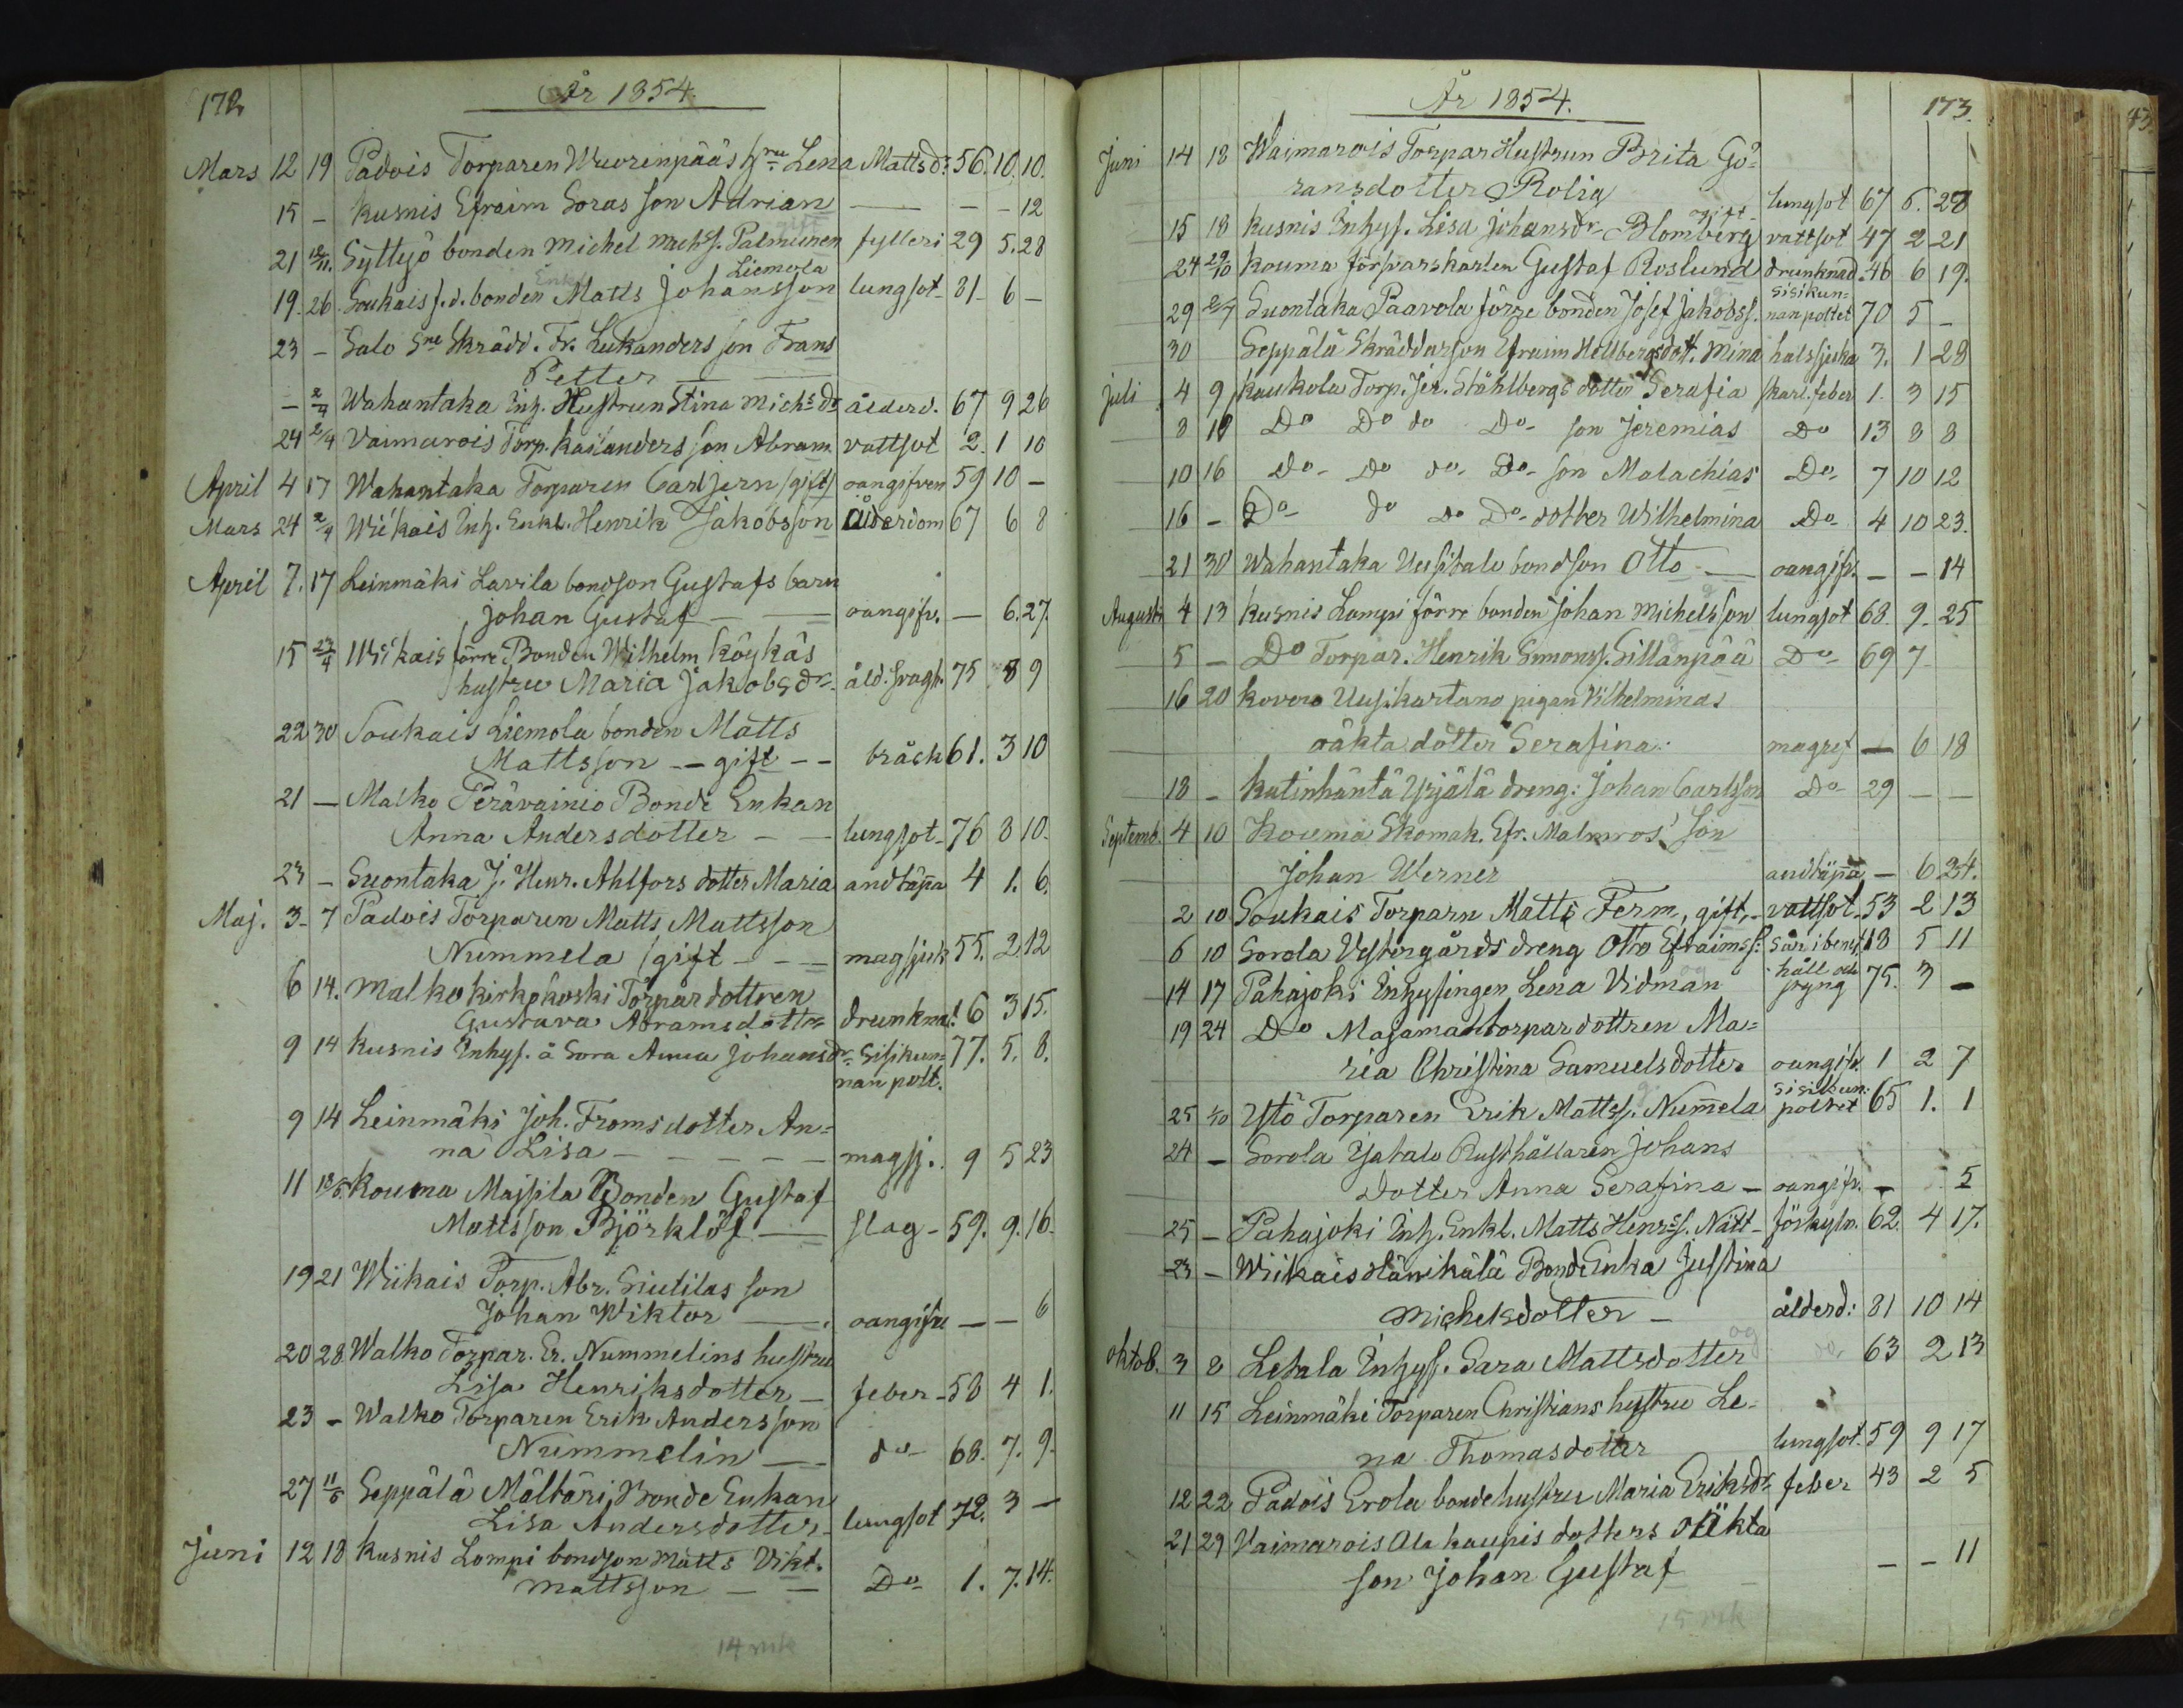 172
År 1854.
Mars 12 19 Padois Torparen Wuorenpääs hru Lena Mattsdr 56. 10. 10.
15 - Kusnis Efraim Soras son Adrian — - - 12
gift
21 Syttyö bonden Michel Michs. Palmunen fylleri 29 5. 28
Enkl. Liemola
19. 26 Soukais f.d. bonden Matts Johansson lungsot 81 - 6 -
23 - Salo Sne Skrädd. Fr. Lukanders son Frans
Petter — —
- 2/4 Wahantaka Inh. Hustrun Stina Michs dr ålderd. 67 9 26
24 2/4 Vaimarois Torp. Kailanders son Abram vattsot 2. 1 10
April 4 17 Wahantaka Torparen Carl Jern /gift/ oangifven 59 10 -
Mars 24 2/4 Wiikais Inh. Enkl. Henrik Jakobsson ålderdom 67 6 8
April 7. 17 Leinmäki Lavila bondson Gustafs barn
Johan Gustaf — — oangifv. — 6. 27.
15 23/4 Wiikais förre Bonden Wilhelm Köykäs
hustru Maria Jakobsdr åld. svagh. 75 8 9
22 30 Soukais Liemola bonden Matts
Mattsson -- gift -- bråck 61. 3 10
21 — Malko Perävainio Bonde Enkan
Anna Andersdotter — — lungsot 76 8 10.
23 - Suontaka J. Henr. Ahlfors dotter Maria andtäpa 4 1. 6.
Maj. 3 - 7 Padois Torparen Matts Mattsson
Nummela /gift — — magsjuk 55. 2 12
6 14. Malko Kirkokoski Torpardottren
Gustava Abramsdotter drunknat 6 3 15.
9 14 Kusnis Inhys. å Sora Anna Johansdr Sisikun= 77. 5. 8.
nan polt.
9 14 Leinmäki Joh. Froms dotter An=
na Lisa — — — — magsj. 9 5 23
11 18/5 Kouma Majsila Bonden Gustaf
Mattsson Björklöf — slag - 59. 9. 16.
19 21 Wiikais Torp. Abr. Siutilas son
Johan Wiktor — oangifv. — — 6
20 28 Walko Torpar. Er. Nummelins hustru
Lisa Henriksdotter — feber - 58 4 1.
23 - Walko Torparen Erik Andersson
Nummelin — do 68. 7. 9.
27 11/6 Seppälä Mältäri Bonde Enkan
Lisa Andersdotter lungsot 72. 3 —
Juni 12 18 Kusnis Lompi bondson Matts Vikt.
Mattsson — — Do 1. 7. 14.
14 mk
173.
År 1854.
Juni 14 18 Waimarois Torpar Hustrun Brita Gö=
ransdotter Rolig lungsot 67 6. 28
gift
15 18 Kusnis Inhys. Lisa Johansdr Blomberg vattsot 47 2 21
24 29/10 Kouma försvarskarlen Gustaf Roslund drunknad. 46 6 19.
sisikun=
29 2/7 Suontaka Paavola förre bonden Josef Jakobss. nan poltet 70 5 -
30 Seppälä Skräddarson Efraim Hellbergs dott. Mina halssjuka 3. 1 28
Juli 4 9 Kaukola Torp. Jer. Ståhlbergs dotter Serafia skarl. feber 1. 3 15
8 10 Do Do do Do son Jeremias Do 13 8 8
10 16 Do Do do Do son Malachias Do 7 10 12
16 - Do do do Do dotter Wilhelmina Do 4 10 23.
21 30 Wahantaka Uusitalo bondson Otto — oangifv. - - 14
Augusti 4 13 Kusnis Lampi förre bonden Johan Michelsson lungsot 68. 9. 25
5 - Do Torpar. Henrik Simonss. Sillanpää Do 69 7.
16 20 Kovero Uusikartano pigan Vilhelminas
oäkta dotter Serafina. magref — 6 18
18 - Katinhäntä Yrjälä dreng: Johan Carlsson Do 29 — —
Septemb. 4 10 Kouma Skomak. Efr. Malmros' son
Johan Werner andtäpa — 6 24.
2 10 Soukais Torparn Matts Ferm, gift, vattsot 53 2 13
6 10 Sorola Vestergårds dreng Otto Efraimss. sår i benet 18 5 11
håll och
14 17 Pahajoki Inhysingen Lena Vidman styng 75. 3 -
19 24 Do Masamaa torpardottren Ma=
ria Christina Samuelsdotter oangifv. 1 2 7
sisikun:
25 Ystö Torparen Erik Mattss. Num̄ela poltet 65 1. 1
24 - Sorola Yatalo Rusthållaren Johans
dotter Anna Serafina — oangifv. — 5
25 - Pahajoki Inh. Enkl. Matts Henrss. Nätt förkyln. 62. 4 17.
23 - Wiikais Bonde Enka Justina
Michelsdotter — ålderd: 81 10 14
og
Oktob. 3 8 Letala Inhys. Sara Mattsdotter do 63 2 13
11 15 Leinmäki Torparen Christians hustru Le=
na Thomasdotter lungsot. 59 9 17
12 22 Padois Erola bondehustru Maria Eriksdr feber 43 2 5
21 29 Vaimarois Ala Kaupis dotters oäkta
son Johan Gustaf — — 11
15 mk